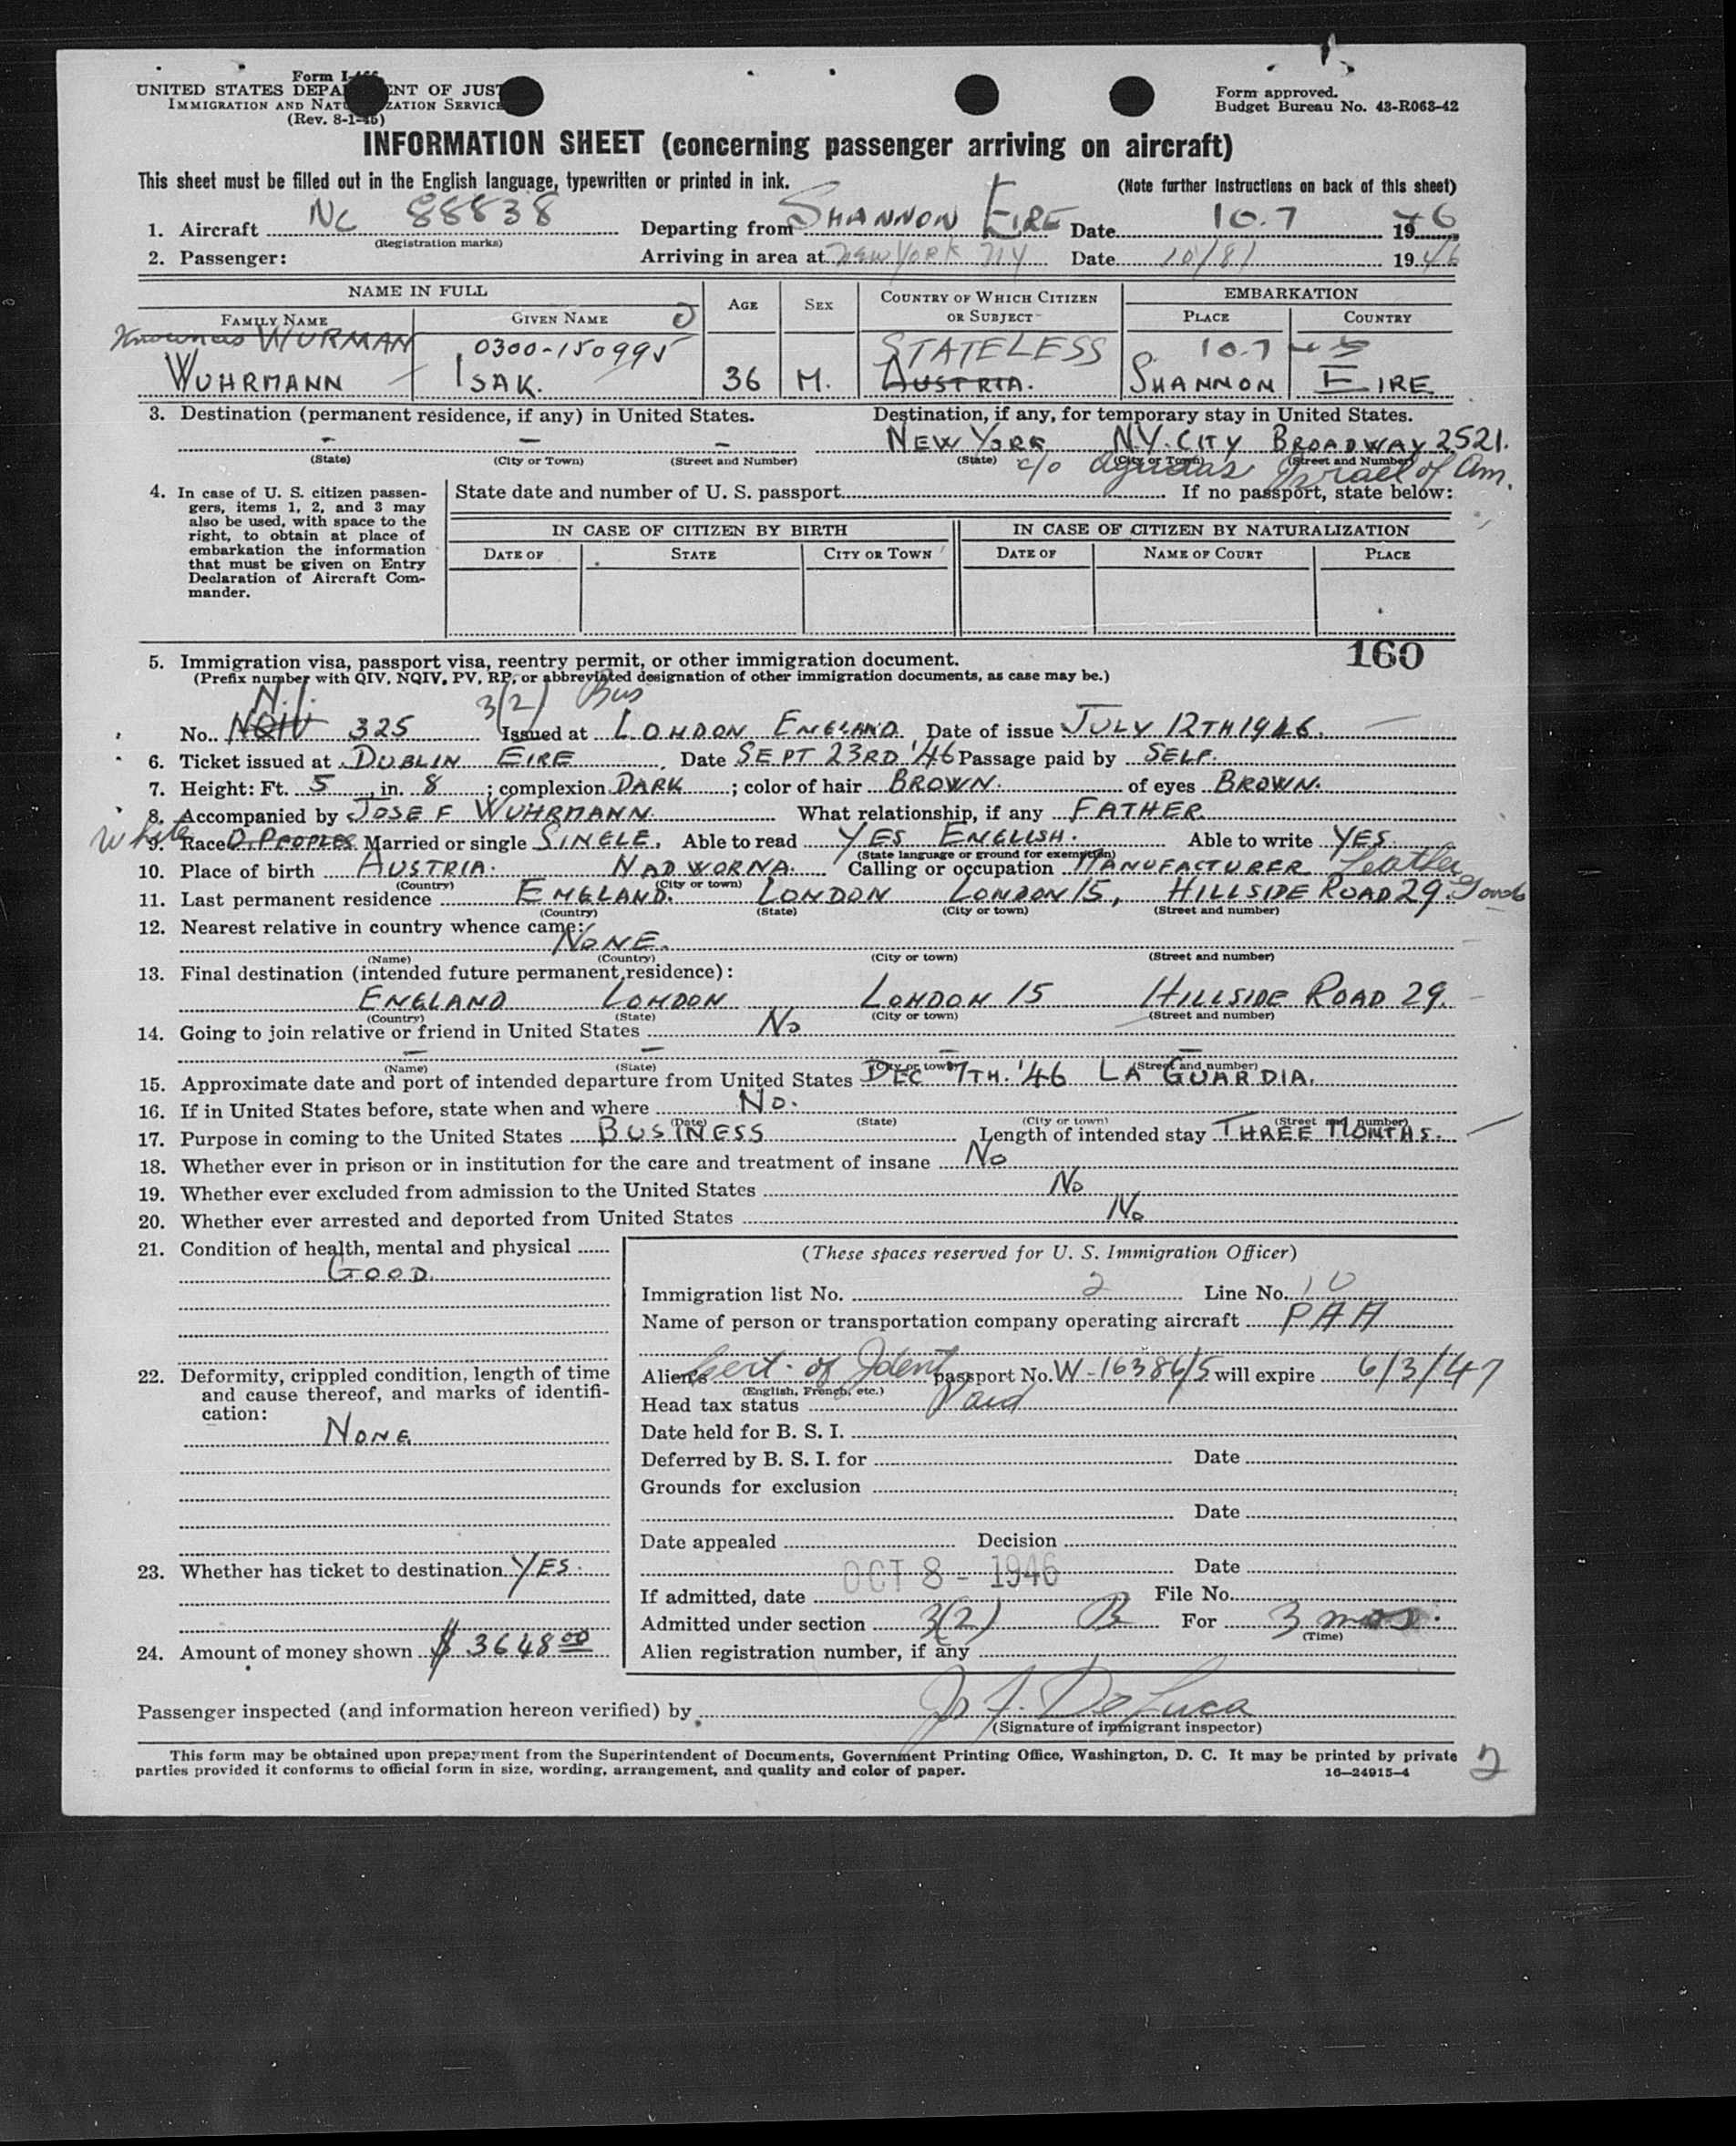 Form I-466
UNITED STATES DEPARTMENT OF JUSTICE
IMMIGRATION AND NATURALIZATION SERVICE
(Rev. 8-1-45)
Form approved.
Budget Bureau No. 43-R063-42
INFORMATION SHEET (concerning passenger arriving on aircraft)
This sheet must be filled out in the English language, typewritten or printed in ink. (Note further instructions on back of this sheet)
1. Aircraft NC 88838 Departing from SHANNON EIRE Date 10.7 1946
(Registration marks)
2. Passenger: Arriving in area at New York NY Date 10/8/ 1946
NAME IN FULL AGE SEX COUNTRY OF WHICH CITIZEN OR SUBJECT EMBARKATION
FAMILY NAME GIVEN NAME PLACE COUNTRY
Known as WURMAN 0300-150995 STATELESS 10.7
WUHRMANN ISAK. 36 M. AUSTRIA. SHANNON EIRE
3. Destination (permanent residence, if any) in United States. Destination, if any, for temporary stay in United States.
– – – NEW YORK N.Y. CITY BROADWAY 2521.
(State) (City or Town) (Street and Number) (State) (City or Town) (Street and Number)
c/o Agudas Israel of Am.
4. In case of U. S. citizen passengers, items 1, 2, and 3 may also be used, with space to the right, to obtain at place of embarkation the information that must be given on Entry Declaration of Aircraft Commander.
State date and number of U. S. passport If no passport, state below:
IN CASE OF CITIZEN BY BIRTH IN CASE OF CITIZEN BY NATURALIZATION
DATE OF STATE CITY OR TOWN DATE OF NAME OF COURT PLACE
160
5. Immigration visa, passport visa, reentry permit, or other immigration document.
(Prefix number with QIV, NQIV, PV, RP, or abbreviated designation of other immigration documents, as case may be.)
N.I. 3(2) Bus
No. NQIV 325 Issued at LONDON ENGLAND Date of issue JULY 12TH 1946.
6. Ticket issued at DUBLIN EIRE Date SEPT 23RD '46 Passage paid by SELF.
7. Height: Ft. 5, in. 8; complexion DARK; color of hair BROWN. of eyes BROWN.
8. Accompanied by JOSEF WUHRMANN. What relationship, if any FATHER.
white
9. Race D.PEOPLES Married or single SINGLE. Able to read YES ENGLISH. Able to write YES.
(State language or ground for exemption)
10. Place of birth AUSTRIA. NADWORNA. Calling or occupation MANUFACTURER Leather Goods
(Country) (City or town)
11. Last permanent residence ENGLAND. LONDON LONDON 15, HILLSIDE ROAD 29.
(Country) (State) (City or town) (Street and number)
12. Nearest relative in country whence came:
NONE.
(Name) (Country) (City or town) (Street and number)
13. Final destination (intended future permanent residence):
ENGLAND LONDON LONDON 15 HILLSIDE ROAD 29.
(Country) (State) (City or town) (Street and number)
14. Going to join relative or friend in United States No
– – – –
(Name) (State) (City or town) (Street and number)
15. Approximate date and port of intended departure from United States DEC 7TH. '46 LA GUARDIA.
16. If in United States before, state when and where No.
(Date) (State) (City or town) (Street and number)
17. Purpose in coming to the United States BUSINESS Length of intended stay THREE MONTHS.
18. Whether ever in prison or in institution for the care and treatment of insane No
19. Whether ever excluded from admission to the United States No
20. Whether ever arrested and deported from United States No
21. Condition of health, mental and physical
GOOD.
22. Deformity, crippled condition, length of time and cause thereof, and marks of identification:
NONE
23. Whether has ticket to destination YES.
24. Amount of money shown $ 3648 00
(These spaces reserved for U. S. Immigration Officer)
Immigration list No. 2 Line No. 10
Name of person or transportation company operating aircraft PAA
Alien's Cert. of Ident passport No. W-16386/5 will expire 6/3/47
(English, French, etc.)
Head tax status Paid
Date held for B. S. I.
Deferred by B. S. I. for Date
Grounds for exclusion
Date
Date appealed Decision
Date
If admitted, date OCT 8 - 1946 File No.
Admitted under section 3(2) B For 3 mos.
(Time)
Alien registration number, if any
Passenger inspected (and information hereon verified) by De Luca
(Signature of immigrant inspector)
This form may be obtained upon prepayment from the Superintendent of Documents, Government Printing Office, Washington, D. C. It may be printed by private
parties provided it conforms to official form in size, wording, arrangement, and quality and color of paper. 16—24915-4
2